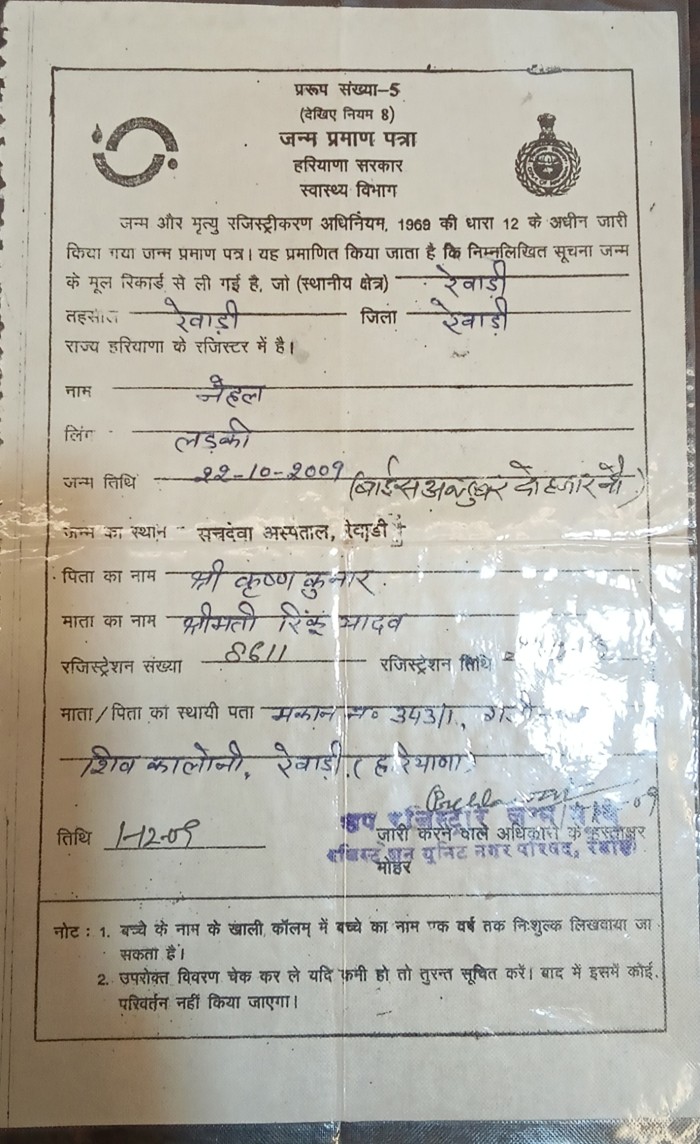 प्ररूप संख्या-5
(देखिए नियम 8)
जन्म प्रमाण पत्रा
हरियाणा सरकार
स्वास्थ्य विभाग
जन्म और मृत्यु रजिस्ट्रीकरण अधिनियम, 1969 की धारा 12 के अधीन जारी
किया गया जन्म प्रमाण पत्र। यह प्रमाणित किया जाता है कि निम्नलिखित सूचना जन्म
के मूल रिकार्ड से ली गई है, जो (स्थानीय क्षेत्र) रेवाड़ी
तहसील रेवाड़ी जिला रेवाड़ी
राज्य हरियाणा के रजिस्टर में है।
नाम नेहल
लिंग लड़की
जन्म तिथि 22-10-2009 (बाईस अक्टूबर दो हजार नौ)
जन्म का स्थान सचदेवा अस्पताल, रेवाड़ी
पिता का नाम श्री कृष्ण कुमार
माता का नाम श्रीमती रिंकू यादव
रजिस्ट्रेशन संख्या 8611 रजिस्ट्रेशन तिथि
माता/पिता का स्थायी पता मकान न० 343/1,
शिव कालोनी, रेवाड़ी (हरियाणा)
उप रजिस्ट्रार जन्म/मृत्यु
तिथि 1-12-09 जारी करने वाले अधिकारी के हस्ताक्षर
रजिस्ट्रेशन यूनिट नगर परिषद, रेवाड़ी
मोहर
नोट : 1. बच्चे के नाम के खाली कॉलम में बच्चे का नाम एक वर्ष तक निःशुल्क लिखवाया जा
सकता है।
2. उपरोक्त विवरण चेक कर ले यदि कमी हो तो तुरन्त सूचित करें। बाद में इसमें कोई
परिवर्तन नहीं किया जाएगा।